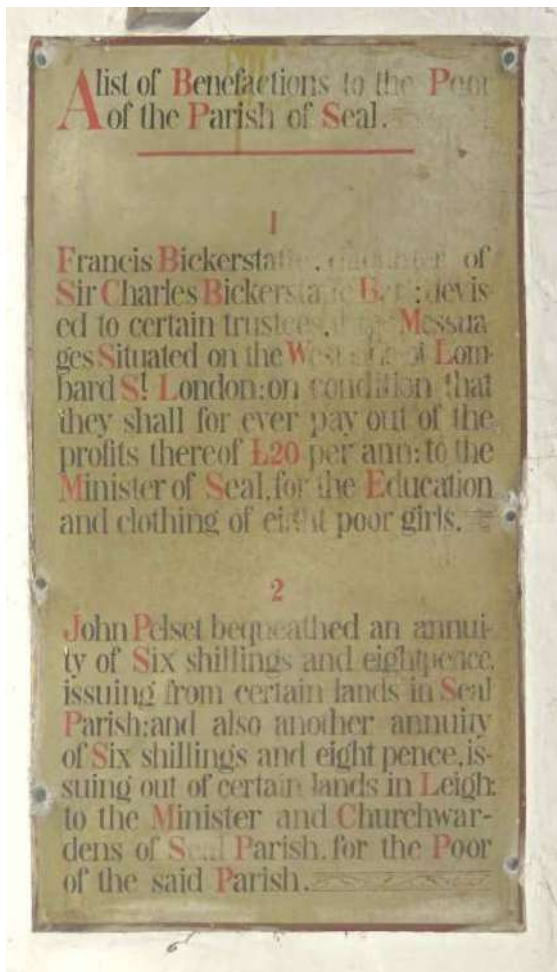 A list of Benefactions to the Poor
of the Parish of Seal.
1
Francis Bickerstaffe, daughter of
Sir Charles Bickerstaffe : devis
ed to certain trustees, Messua
ges Situated on the West side of Lom-
bard St. London: on condition that
they shall for ever pay out of the
profits thereof £20 per ann: to the
Minister of Seal, for the Education
and clothing of eight poor girls.
2
John Pelset bequeathed an annui-
ty of Six shillings and eightpence,
issuing from certain lands in Seal
Parish: and also another annuity
of Six shillings and eight pence, is-
suing out of certain lands in Leigh:
to the Minister and Churchwar-
dens of Seal Parish, for the Poor
of the said Parish.